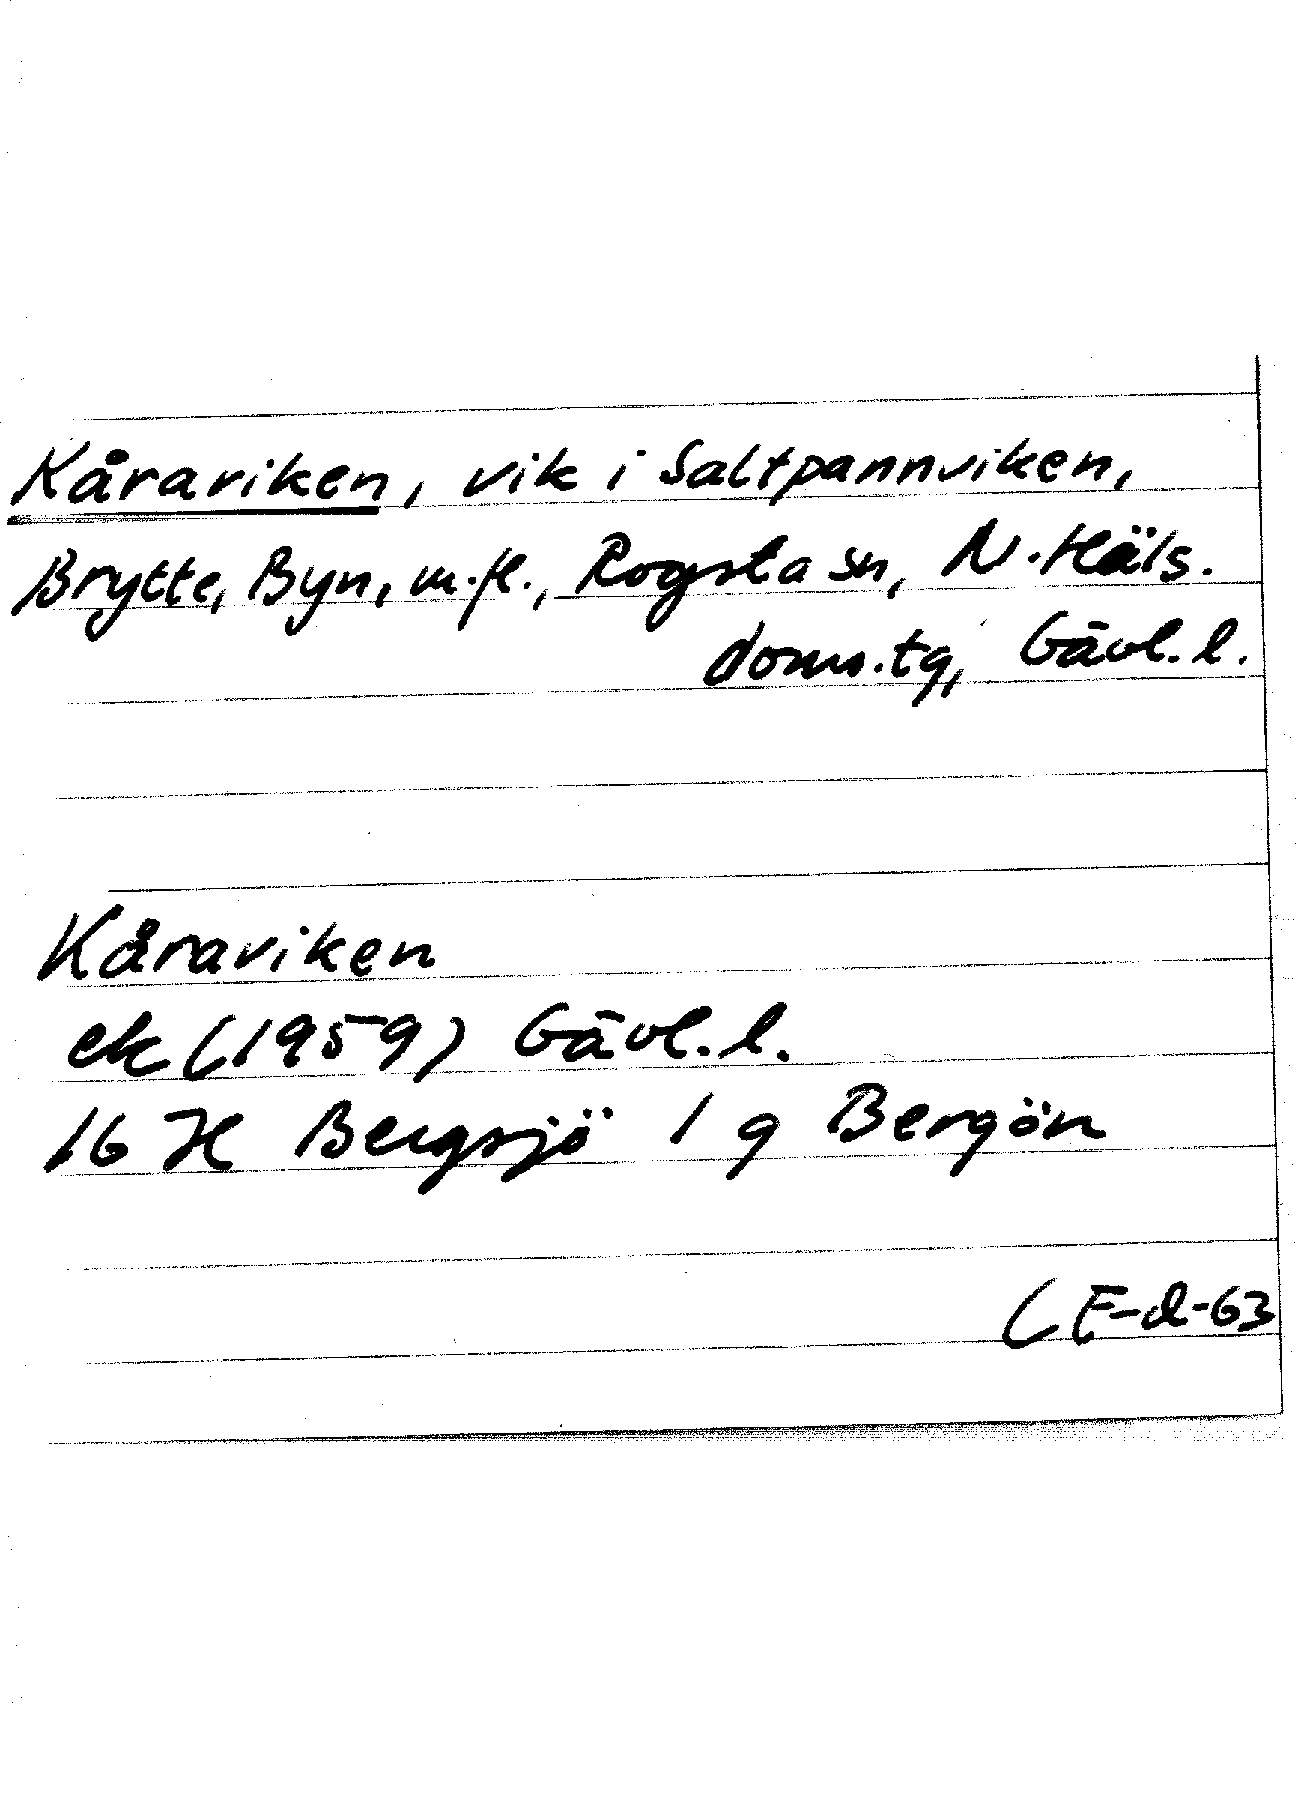 Kåraviken, vik i Saltpannviken,
Brytte, Byn, m.fl., Rogsta sn, N. Häls.
doms.tg, Gävl. l.
Kåraviken
ek (1959) Gävl. l.
16 H Bergsjö 1 g Bergön
CE-d-63